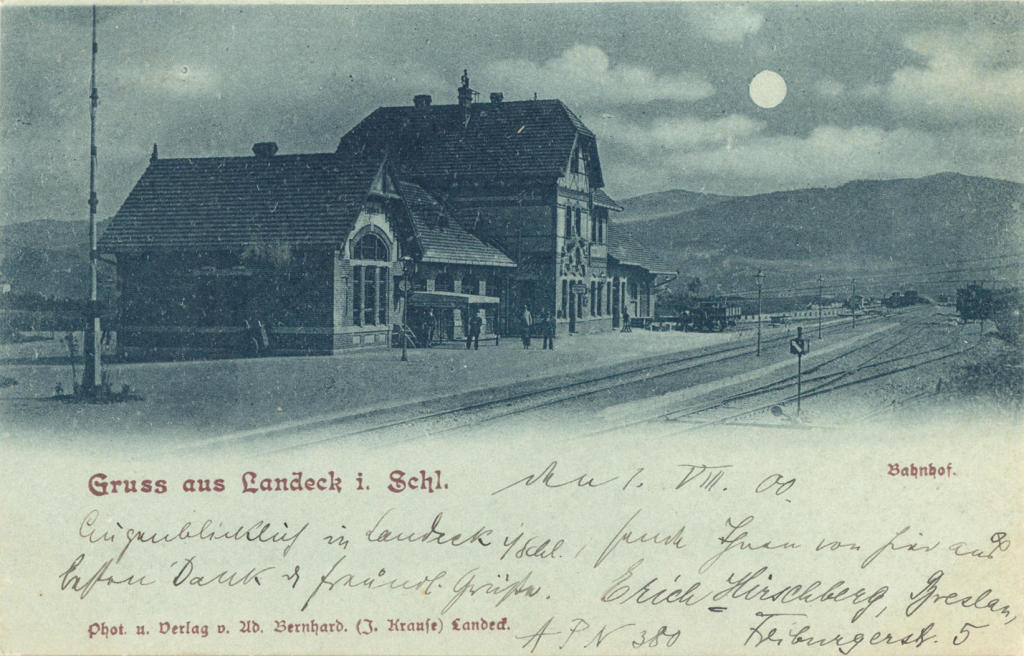 Gruss aus Landeck i. Schl.
den 1. VIII. 00.
Bahnhof.
Augenblicklich in Landeck i/Schl., sende Ihnen von hier aus
besten Dank & freundl. Grüße. Erich Hirschberg, Breslau,
Phot. u. Verlag v. Ad. Bernhard. (J. Krause) Landeck.
A P N 380
Freiburgerstr. 5